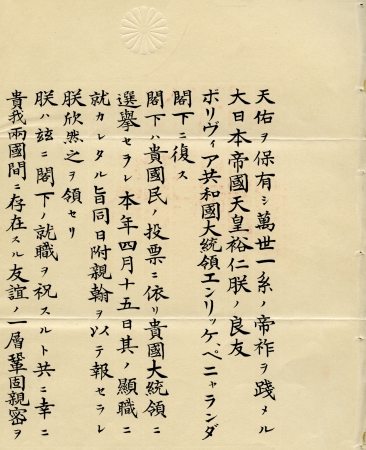 天佑ヲ保有シ萬世一系ノ帝祚ヲ踐メル
大日本帝國天皇裕仁朕ノ良友
ボリヴィア共和國大統領エンリッケ、ペニャランダ
閣下ニ復ス
閣下ハ貴國民ノ投票ニ依リ貴國大統領ニ
選擧セラレ本年四月十五日其ノ顯職ニ
就カレタル旨同日附親翰ヲ以テ報セラレ
朕欣然之ヲ領セリ
朕ハ玆ニ閣下ノ就職ヲ祝スルト共ニ幸ニ
貴我兩國間ニ存在スル友誼ノ一層鞏固親密ヲ